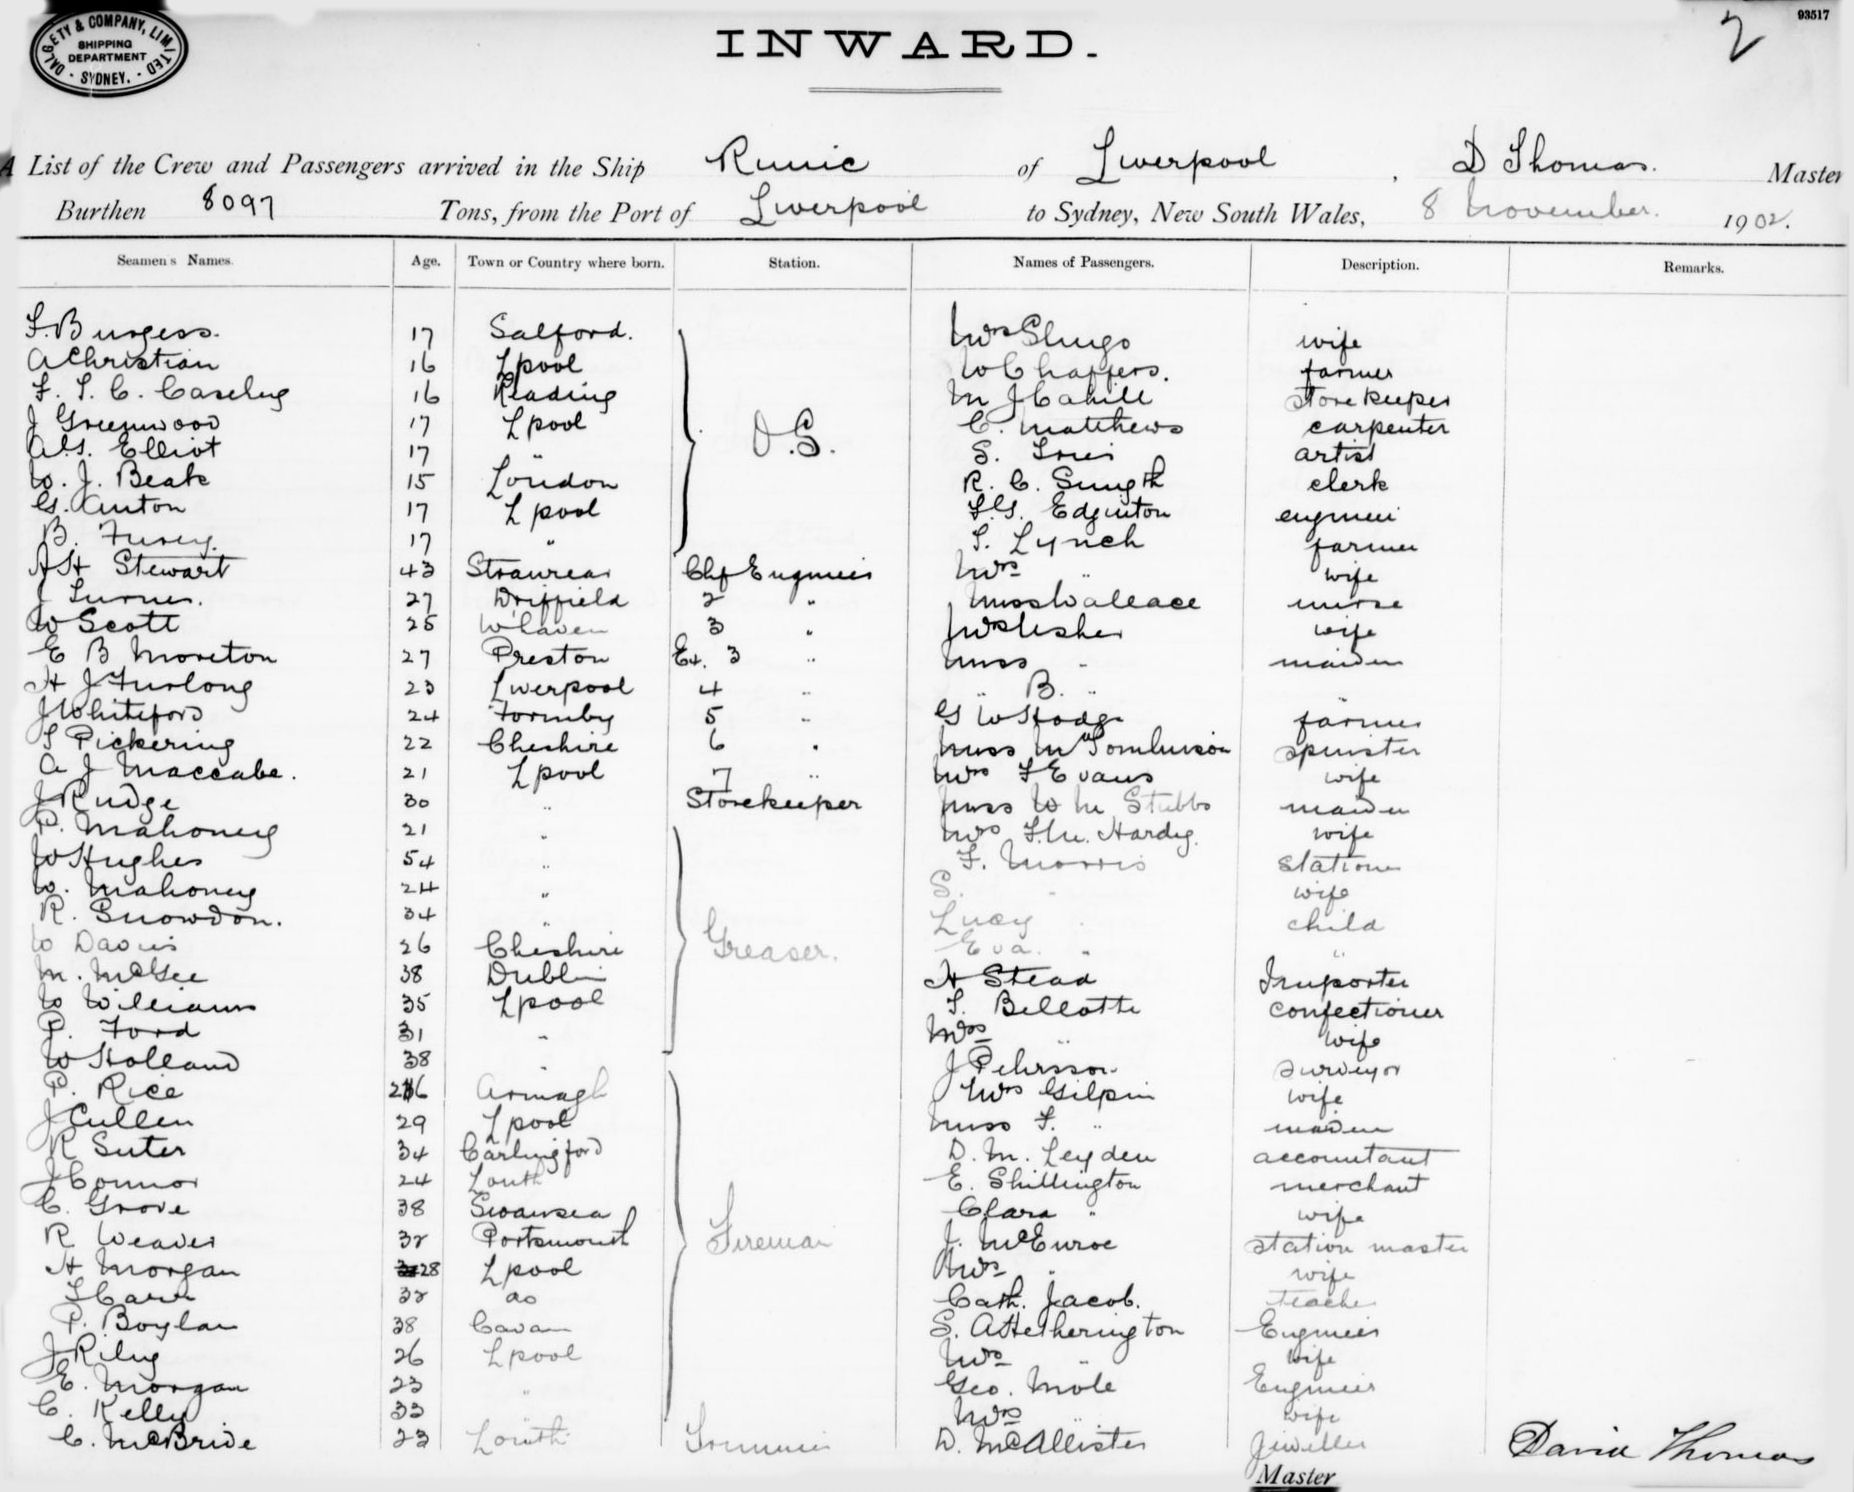 DALGETY & COMPANY, LIMITED
SHIPPING
DEPARTMENT
SYDNEY.
93517
2
INWARD.
A List of the Crew and Passengers arrived in the Ship Runic of Liverpool, D Thomas. Master
Burthen 8097 Tons, from the Port of Liverpool to Sydney, New South Wales, 8 November. 1902.
Seamens Names. Age. Town or Country where born. Station. Names of Passengers. Description. Remarks.
F. Burgess. 17 Salford. Mrs wife
A Christian 16 Lpool W Chaffers. farmer
F. S. C. 16 Reading M J Cahill storekeeper
J Greenwood 17 Lpool O.S. C. Matthews carpenter
A.G. Elliot 17 " S. artist
W. J. Beak 15 London R. C. Smyth clerk
G. Anton 17 Lpool F.G. Edginton engineer
B. Furey. 17 " T. Lynch farmer
A H Stewart 43 Stranrear Chf Engineer Mrs " wife
J Turner. 27 Driffield 2 " Miss Wallace nurse
W Scott 25 W'haven 3 " Mrs Usher wife
E B Moreton 27 Preston Ex. 3 " Miss " maiden
H J Furlong 23 Liverpool 4 " " B. " "
J Whiteford 24 Formby 5 " G W Hodge farmer
S Pickering 22 Cheshire 6 " Miss M Tomlinson spinster
A J Maccabe. 21 Lpool 7 " Mrs F Evans wife
J Rudge 30 " Storekeeper Miss W M Stubbs maiden
P. Mahoney 21 " Mrs F.M. Hardy. wife
W Hughes 54 " F. Morris Stationer
W. Mahoney 24 " S. " wife
R. Snowdon. 34 " Lucy " child
W Davies 26 Cheshire Greaser. Eva " "
M. McGee 38 Dublin H Stead Importer
W Williams 35 Lpool T. Bellotte confectioner
P. Ford 31 " Mrs " wife
W Holland 38 " J Pehrsson surveyor
P. Rice 26 Armagh Mrs Gilpin wife
J Cullen 29 Lpool Miss F. " maiden
R Suter 34 Carlingford D. M. Leyden accountant
J Connor 24 Louth E. Shillington merchant
C. Grove 38 Swansea Clara " wife
R Weaver 32 Portsmouth Fireman J. McEnroe station master
H Morgan 28 Lpool Mrs " wife
T Carr 32 do Cath. Jacob. teacher
P. Boylan 38 Cavan S. A Hetherington Engineer
J Riley 26 Lpool Mrs " wife
E. Morgan 23 " Geo. Mole Engineer
C. Kelly 33 Mrs " wife
C. McBride 23 Louth D. McAllister Jeweller
David Thomas
Master